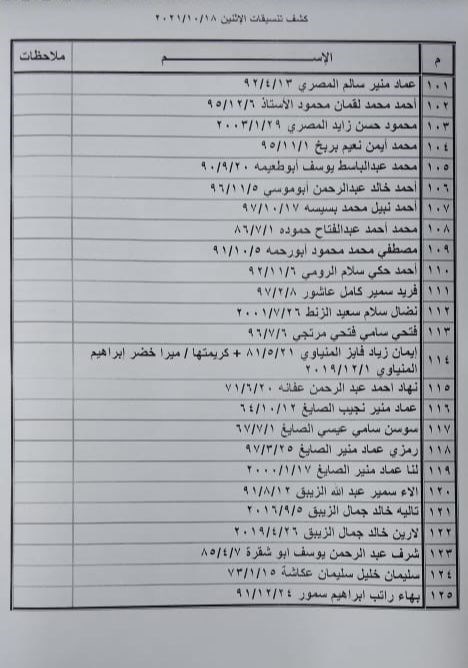 كشف تنسيقات الإثنين ٢٠٢١/١٠/١٨
م الإســــــم ملاحظات
١٠١ عماد منير سالم المصري ٩٢/٤/١٣
١٠٢ احمد محمد لقمان محمود الأستاذ ٩٥/١٢/٦
١٠٣ محمود حسن زايد المصري ٢٠٠٣/١/٢٩
١٠٤ محمد أيمن نعيم بربخ ٩٥/١١/١
١٠٥ محمد عبدالباسط يوسف أبوطعيمه ٩٠/٩/٢٠
١٠٦ أحمد خالد عبدالرحمن أبوموسي ٩٦/١١/٥
١٠٧ أحمد نبيل محمد بسيسه ٩٧/١٠/١٧
١٠٨ محمد أحمد عبدالفتاح حموده ٨٦/٧/١
١٠٩ مصطفي محمد محمود أبورحمه ٩١/١٠/٥
١١٠ أحمد حكي سلام الرومي ٩٢/١١/٦
١١١ فريد سمير كامل عاشور ٩٧/٢/٨
١١٢ نضال سلام سعيد الزنط ٢٠٠١/٧/٢٦
١١٣ فتحي سامي فتحي مرتجي ٩٦/٧/٦
١١٤ إيمان زياد فايز المنياوي ٨١/٥/٢١ + كريمتها / ميرا خضر إبراهيم
المنياوي ٢٠١٩/١٢/١
١١٥ نهاد احمد عبد الرحمن عفانه ٧١/٦/٢٠
١١٦ عماد منير نجيب الصايغ ٦٤/١٠/١٢
١١٧ سوسن سامي عيسي الصايغ ٦٧/٧/١
١١٨ رمزي عماد منير الصايغ ٩٧/٣/٢٥
١١٩ لنا عماد منير الصايغ ٢٠٠٠/١/١٧
١٢٠ الاء سمير عبد الله الزيبق ٩١/٨/١٢
١٢١ تاليه خالد جمال الزيبق ٢٠١٦/٩/٥
١٢٢ لارين خالد جمال الزيبق ٢٠١٩/٤/٢٦
١٢٣ شرف عبد الرحمن يوسف ابو شقرة ٨٥/٤/٧
١٢٤ سليمان خليل سليمان عكاشة ٧٣/١/١٥
١٢٥ بهاء راتب ابراهيم سمور ٩١/١٢/٢٤